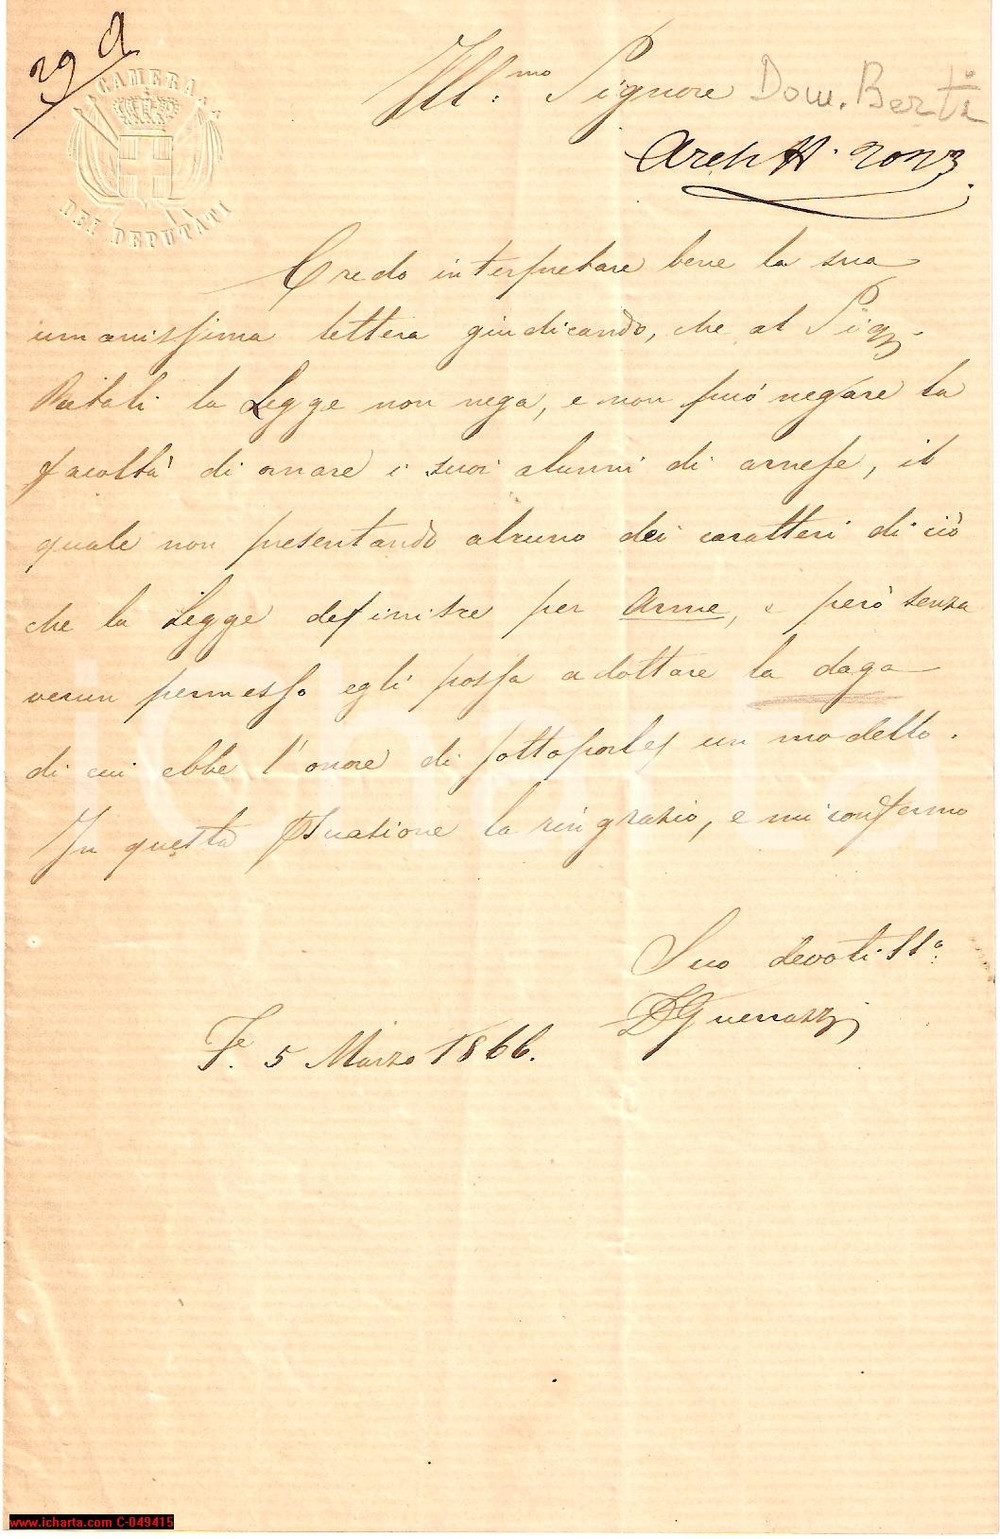 29 A
CAMERA
DEI DEPUTATI
Ill.mo Signore Dom. Berti
Credo interpretare bene la sua
umanissima lettera giudicando, che al Sig.
la Legge non nega, e non può negare la
facoltà di ornare i suoi alunni di arnese, il
quale non presentando alcuno dei caratteri di ciò
che la Legge definisce per Arme, e però senza
verun permesso egli possa adottare la daga
di cui ebbe l'onore di sottoporle un modello.
In questa persuasione la ringrazio, e mi confermo
Suo devotiss.o
FDGuerrazzi
F.e 5 Marzo 1866.
iCharta
www.icharta.com C-049415